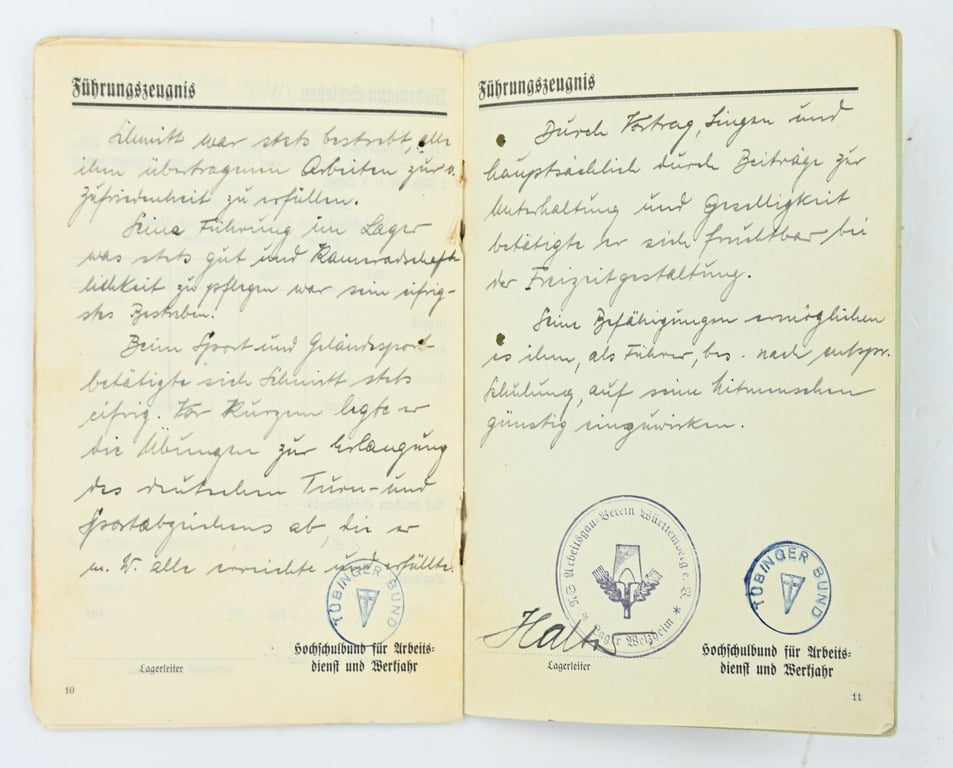 Führungszeugnis
Schmitt war stets bestrebt, alle
ihm übertragenen Arbeiten zur
Zufriedenheit zu erfüllen.
Seine Führung im Lager
was stets gut und Kameradschaft-
lichkeit zu pflegen war sein eifrig-
stes Bestreben.
Beim Sport und Geländesport
betätigte sich Schmitt stets
eifrig. Vor Kurzem legte er
die Übungen zur Erlangung
des deutschen Turn- und
Sportabzeichens ab, die er
m. W. alle erreichte und erfüllte.
TÜBINGER BUND
Hochschulbund für Arbeits-
dienst und Werkjahr
Lagerleiter
10
Führungszeugnis
Durch Vortrag, Singen und
hauptsächlich durch Beiträge zur
Unterhaltung und Geselligkeit
betätigte er sich fruchtbar bei
der Freizeitgestaltung.
Seine Befähigungen ermöglichen
es ihm, als Führer, bes. nach entspr.
Schulung, auf seine Mitmenschen
günstig einzuwirken.
N.S. Arbeitsgau-Verein Württemberg e. V.
Lager Welzheim
TÜBINGER BUND
Hochschulbund für Arbeits-
dienst und Werkjahr
Lagerleiter
11